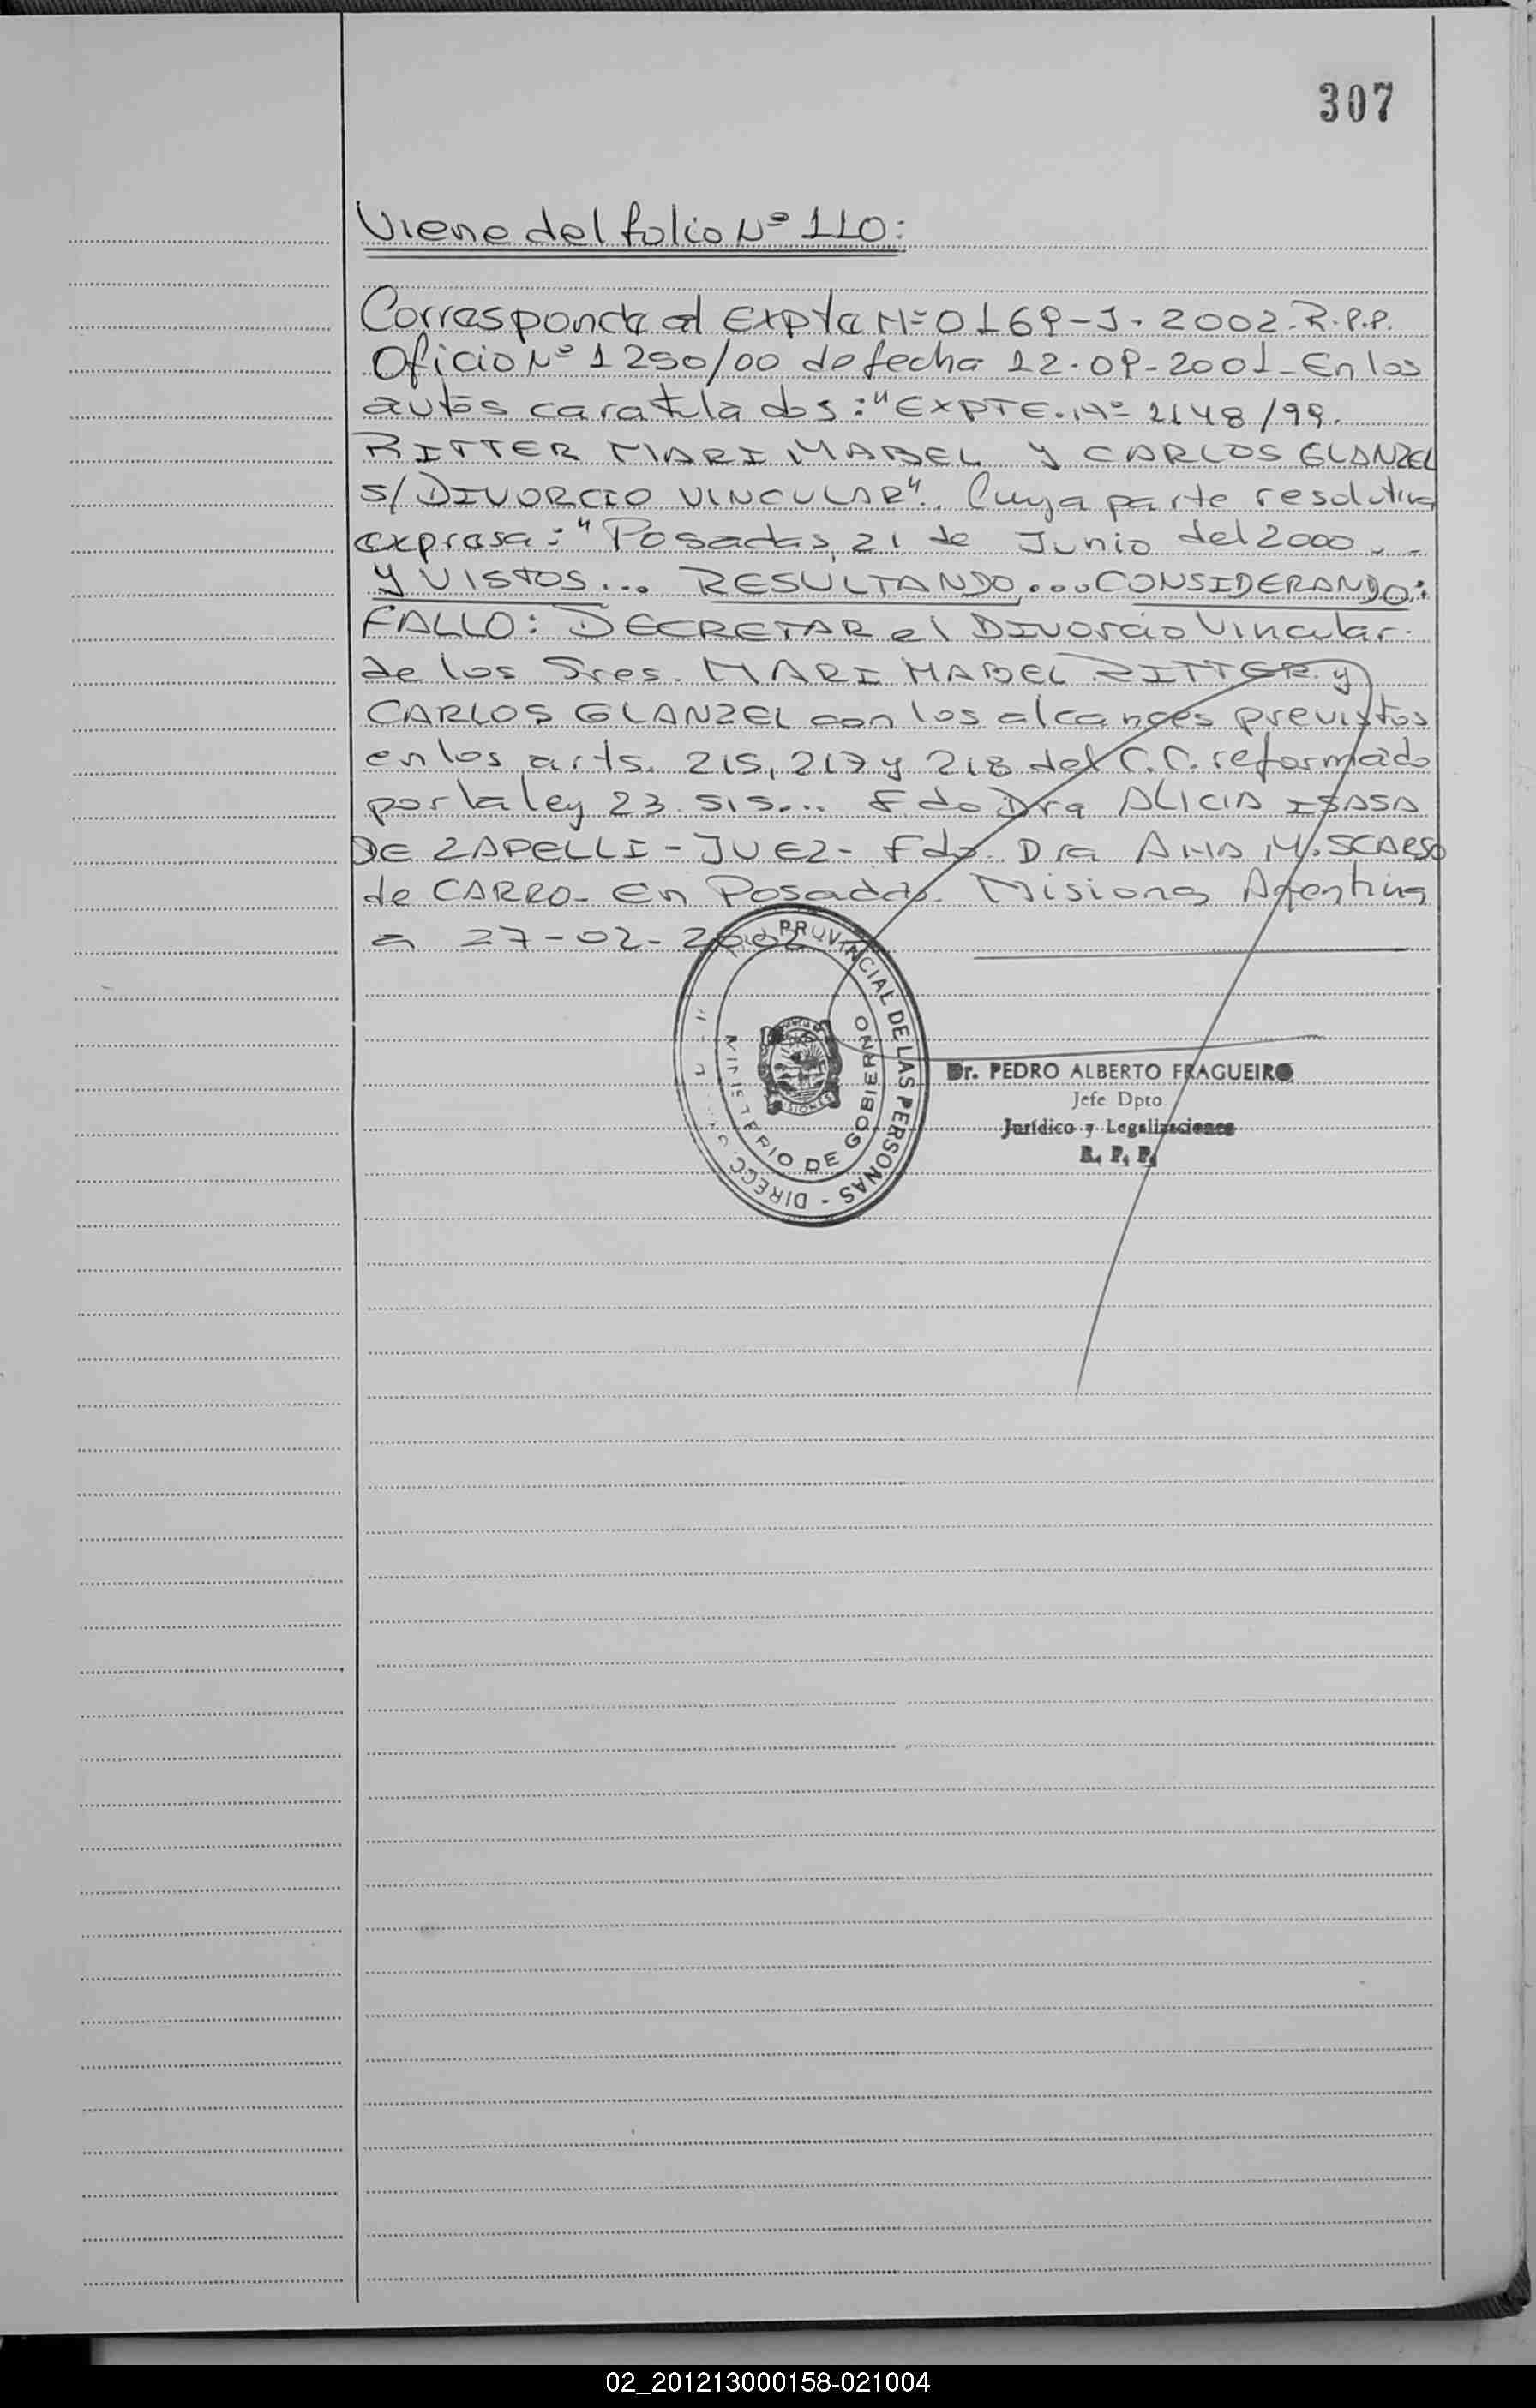 307
Viene del folio Nº 110:
Corresponde al Expte Nº 0169-J-2002-R.P.P.
Oficio Nº 1250/00 de fecha 12-09-2001- En los
autos caratulados: "EXPTE. Nº 2148/99.
RITTER MARI MABEL Y CARLOS GLANZEL
S/DIVORCIO VINCULAR". Cuya parte resolutiva
expresa: "Posadas, 21 de Junio del 2000...
Y VISTOS... RESULTANDO... CONSIDERANDO:
FALLO: DECRETAR el DIVorcio Vincular
de los Sres. MARI MABEL RITTER y
CARLOS GLANZEL con los alcances previstos
en los arts. 215, 217 y 218 del C.C. reformado
por la ley 23.515... Fdo Dra ALICIA ISASA
DE ZAPELLI - JUEZ - Fdo. Dra ANA M. SCARSO
de CARRO- En Posadas. Misiones Argentina
a 27-02-2002
PROVINCIAL DE LAS PERSONAS - DIRECC
MINISTERIO DE GOBIERNO
Dr. PEDRO ALBERTO FRAGUEIRO
Jefe Dpto
Jurídico y Legalizaciones
R. P. P.
02_201213000158-021004